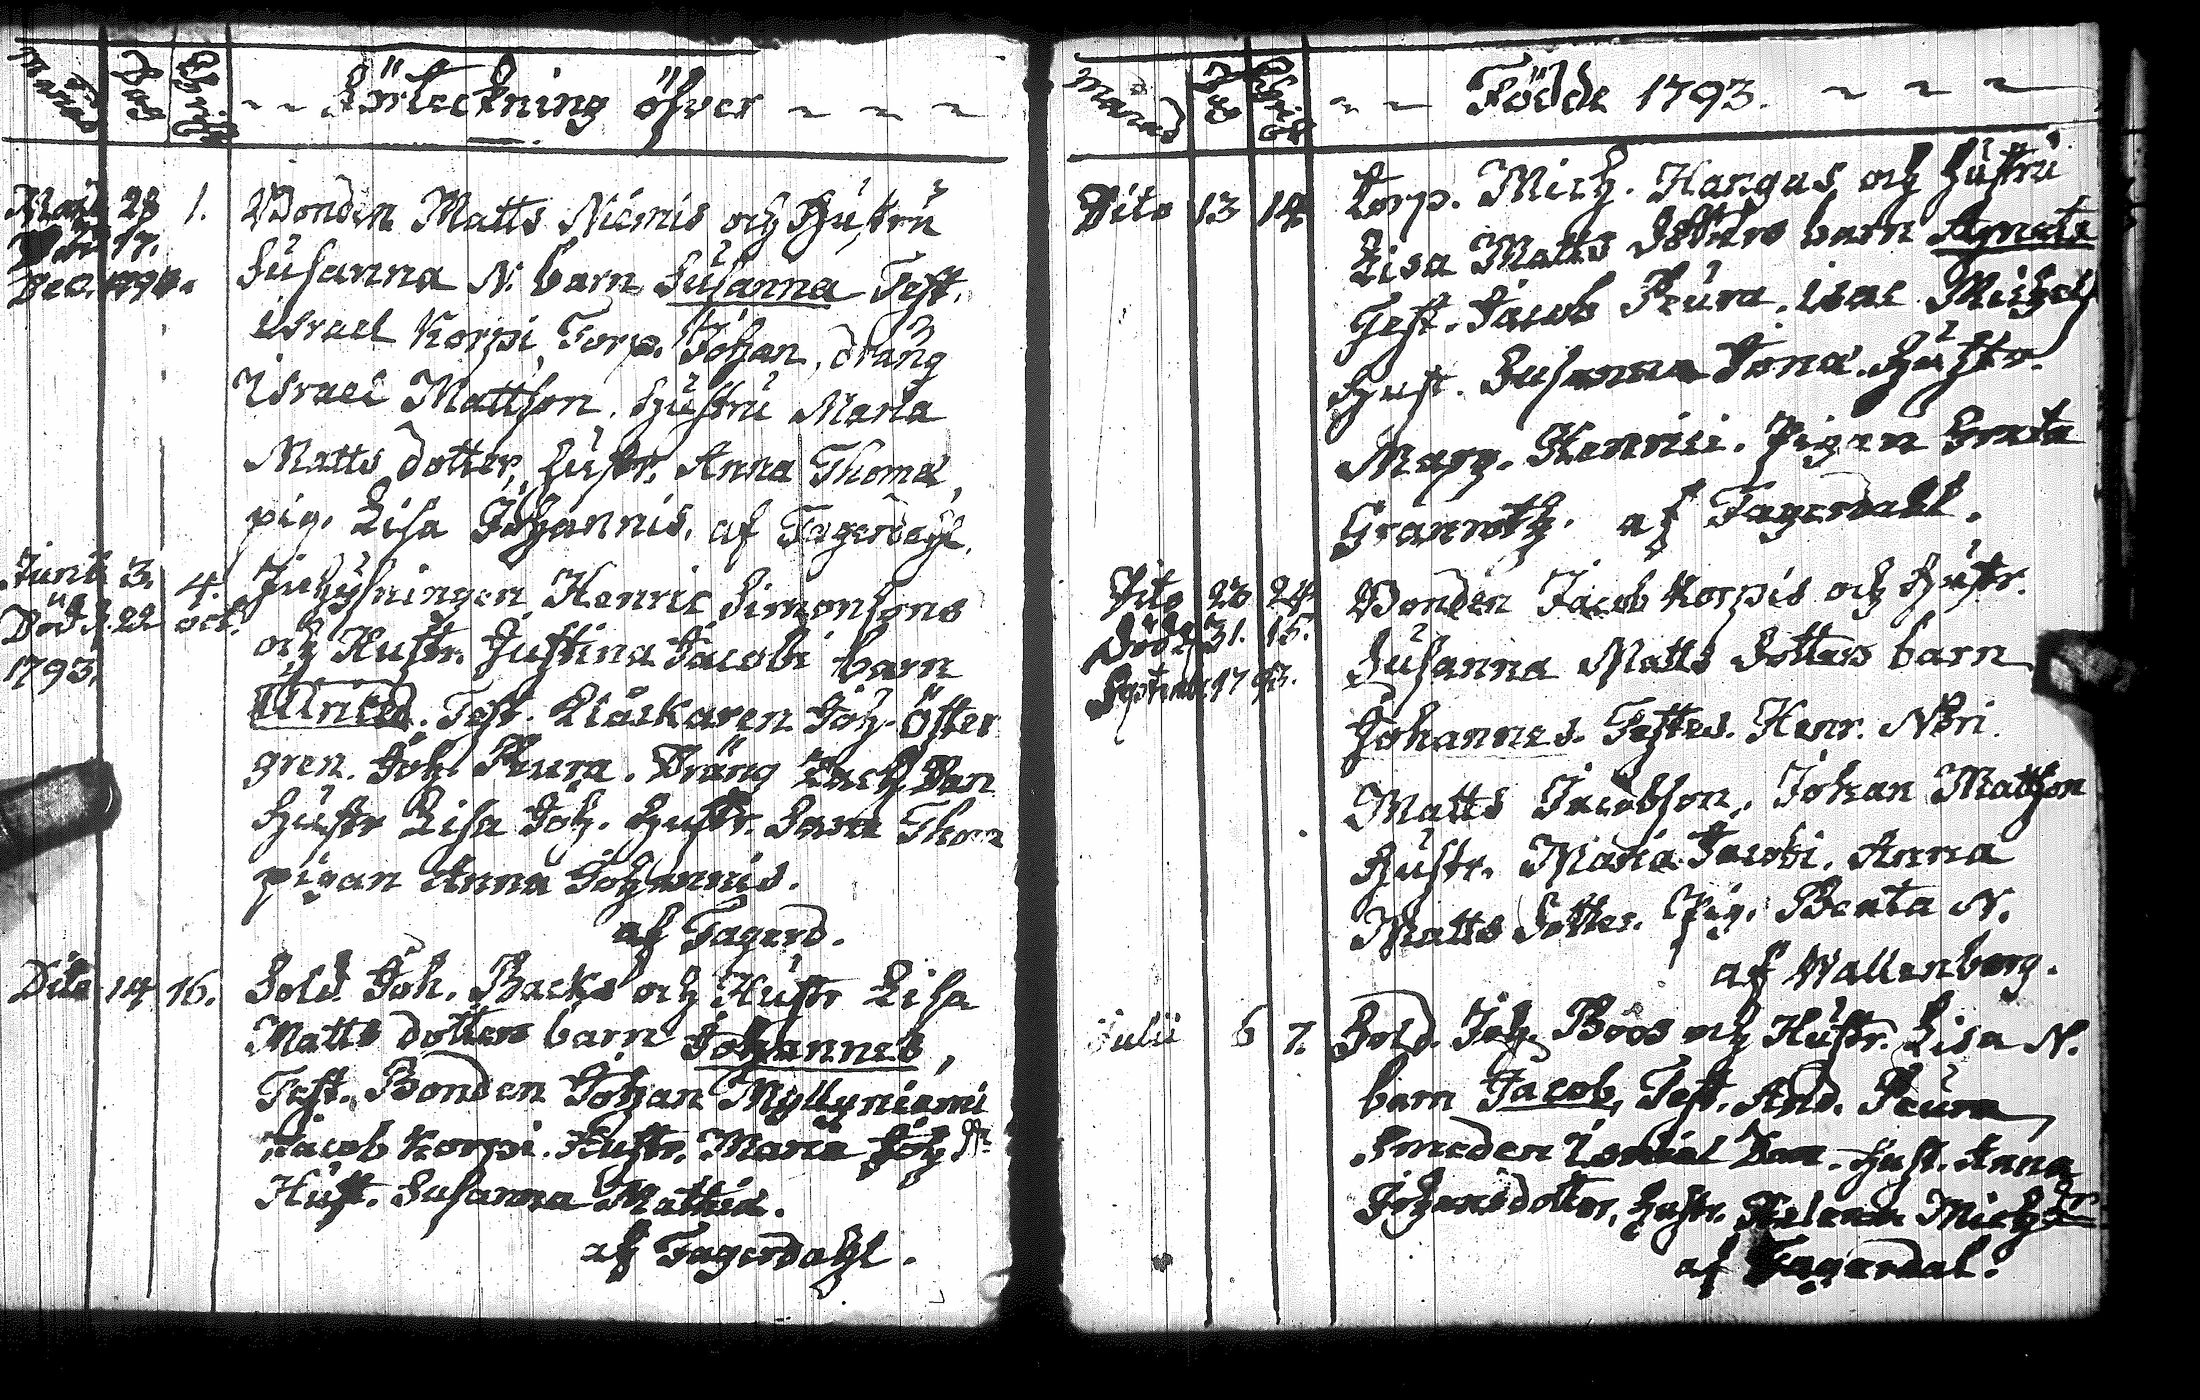 Månad Dag Christn -- Förteckning öfver ---
Maji 28 1. Bonden Matts Niemis och Hustru
Död 17. Susanna N. barn Susanna Test.
Dec.
Israel Korpi, Torp. Johan, dräng
Israel Mattson, Hustru Maria
Matts dotter, Hustr. Anna Thomæ,
pig. Lisa Johannis, af Fagerdahl.
Junii 3. 4. Inhysningen Henric Simonsons
Död d. 22 oct. och Hustr. Justina Jacobi barn
1793. Test. Klåckaren Joh. Öster
gren. Joh. Peura. Dräng Zach. Dan
Hustr Lisa Joh. Hustr. Sara Thom
pigan Anna Johannis.
af Fagerd.
Dito 14 16. Sold. Joh. Backs och Hustr Lisa
Matts dotters barn Johannes,
Test. Bonden Johan Myllyniemi
Jacob Korpi. Hustr. Maria Joh. dr
Hust. Susanna Mathiæ.
af Fagerdahl.
Månad Dag Christn -- Födde 1793. ---
Dito 13 14 torp. Mich. Kangas och Hustru
Lisa Matts dotters barn Agneta
Test. Jacob Peura. Isac Michel
Hust. Susanna Jonæ. Hustr.
Marg. Henrici. Pigan Greta
Granroth. af Fagerdahl.
Dito 23 24 Bonden Jacob Korpis och Hustr.
Döde 31. 15. Susanna Matts dotters barn
Septemb 1793.
Johannes. Testes. Henr. Nori.
Matts Jacobson, Johan Mattson
Hustr. Maria Jacobi, Anna
Matts dotter. Pig. Beata N.
af Wallenberg.
Julii 6 7. Sold. Joh. Boos och Hustr. Lisa N.
barn Jacob, Test. And. Peura,
Smeden Dan. Hust. Anna
Johansdotter, Hustr. Helena Mich. dr
af Fagerdal.